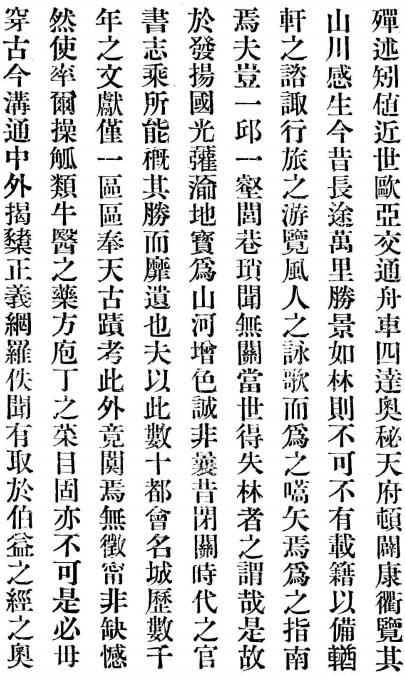 殫述矧値近世歐亞交通舟車四達奧秘天府頓闢康衢覽其
山川感生今昔長途萬里勝景如林則不可不有載籍以備輶
軒之諮諏行旅之游覽風人之詠歌而爲之嚆矢焉爲之指南
焉夫豈一邱一壑閭巷瑣聞無關當世得失林者之謂哉是故
於發揚國光瀹地寶爲山河增色誠非曩昔閉關時代之官
書志乘所能概其勝而靡遺也夫以此數十都會名城歷數千
年之文獻僅一區區奉天古蹟考此外竟闃焉無徵甯非缺憾
然使率爾操觚類牛醫之藥方庖丁之菜目固亦不可是必毌
穿古今溝通中外揭櫫正義網羅佚聞有取於伯益之經之奧